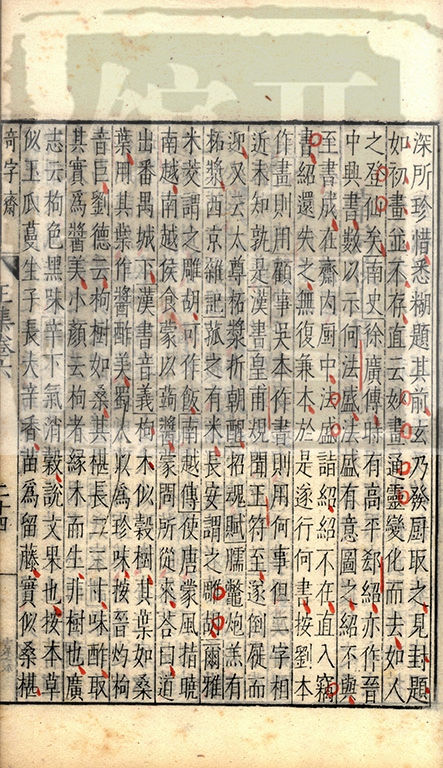 深所珍惜悉糊題其前玄乃發厨取之見封題
如初畫並不存直云妙畫通靈變化而去如人
之登仙矣南史徐廣傳時有高平郄紹亦作晉
中興書數以示何法盛法盛有意圖之紹不與
至書成在齋内厨中法盛詣紹紹不在直入竊
書紹還失之無復兼本於是遂行何書按劉本
作畫則用顧事吴本作書則用何事但二字相
近未知孰是漢書皇甫規聞王符至遂倒屣而
迎又云太尊柘漿折朝酲招魂賦臑鼈炮羔有
柘漿西京雜記菰之有米長安謂之雕胡爾雅
米茭謂之雕胡可作飯南越傳使唐蒙風指曉
南越南越侯食蒙以蒟醬蒙問所從來荅曰道
出番禺城下漢書音義枸木似穀樹其葉如桑
葉用其葉作醬酢美蜀人以爲珍味按晉灼枸
音巨劉德云枸樹如桑其椹長二三寸味酢取
其實爲醬美小顏云枸者緣木而生非樹也廣
志云枸色黑味辛下氣消穀說文果也按本草
似王瓜蔓生子長大辛香苗爲留藤實似桑椹
奇字齋
二十四